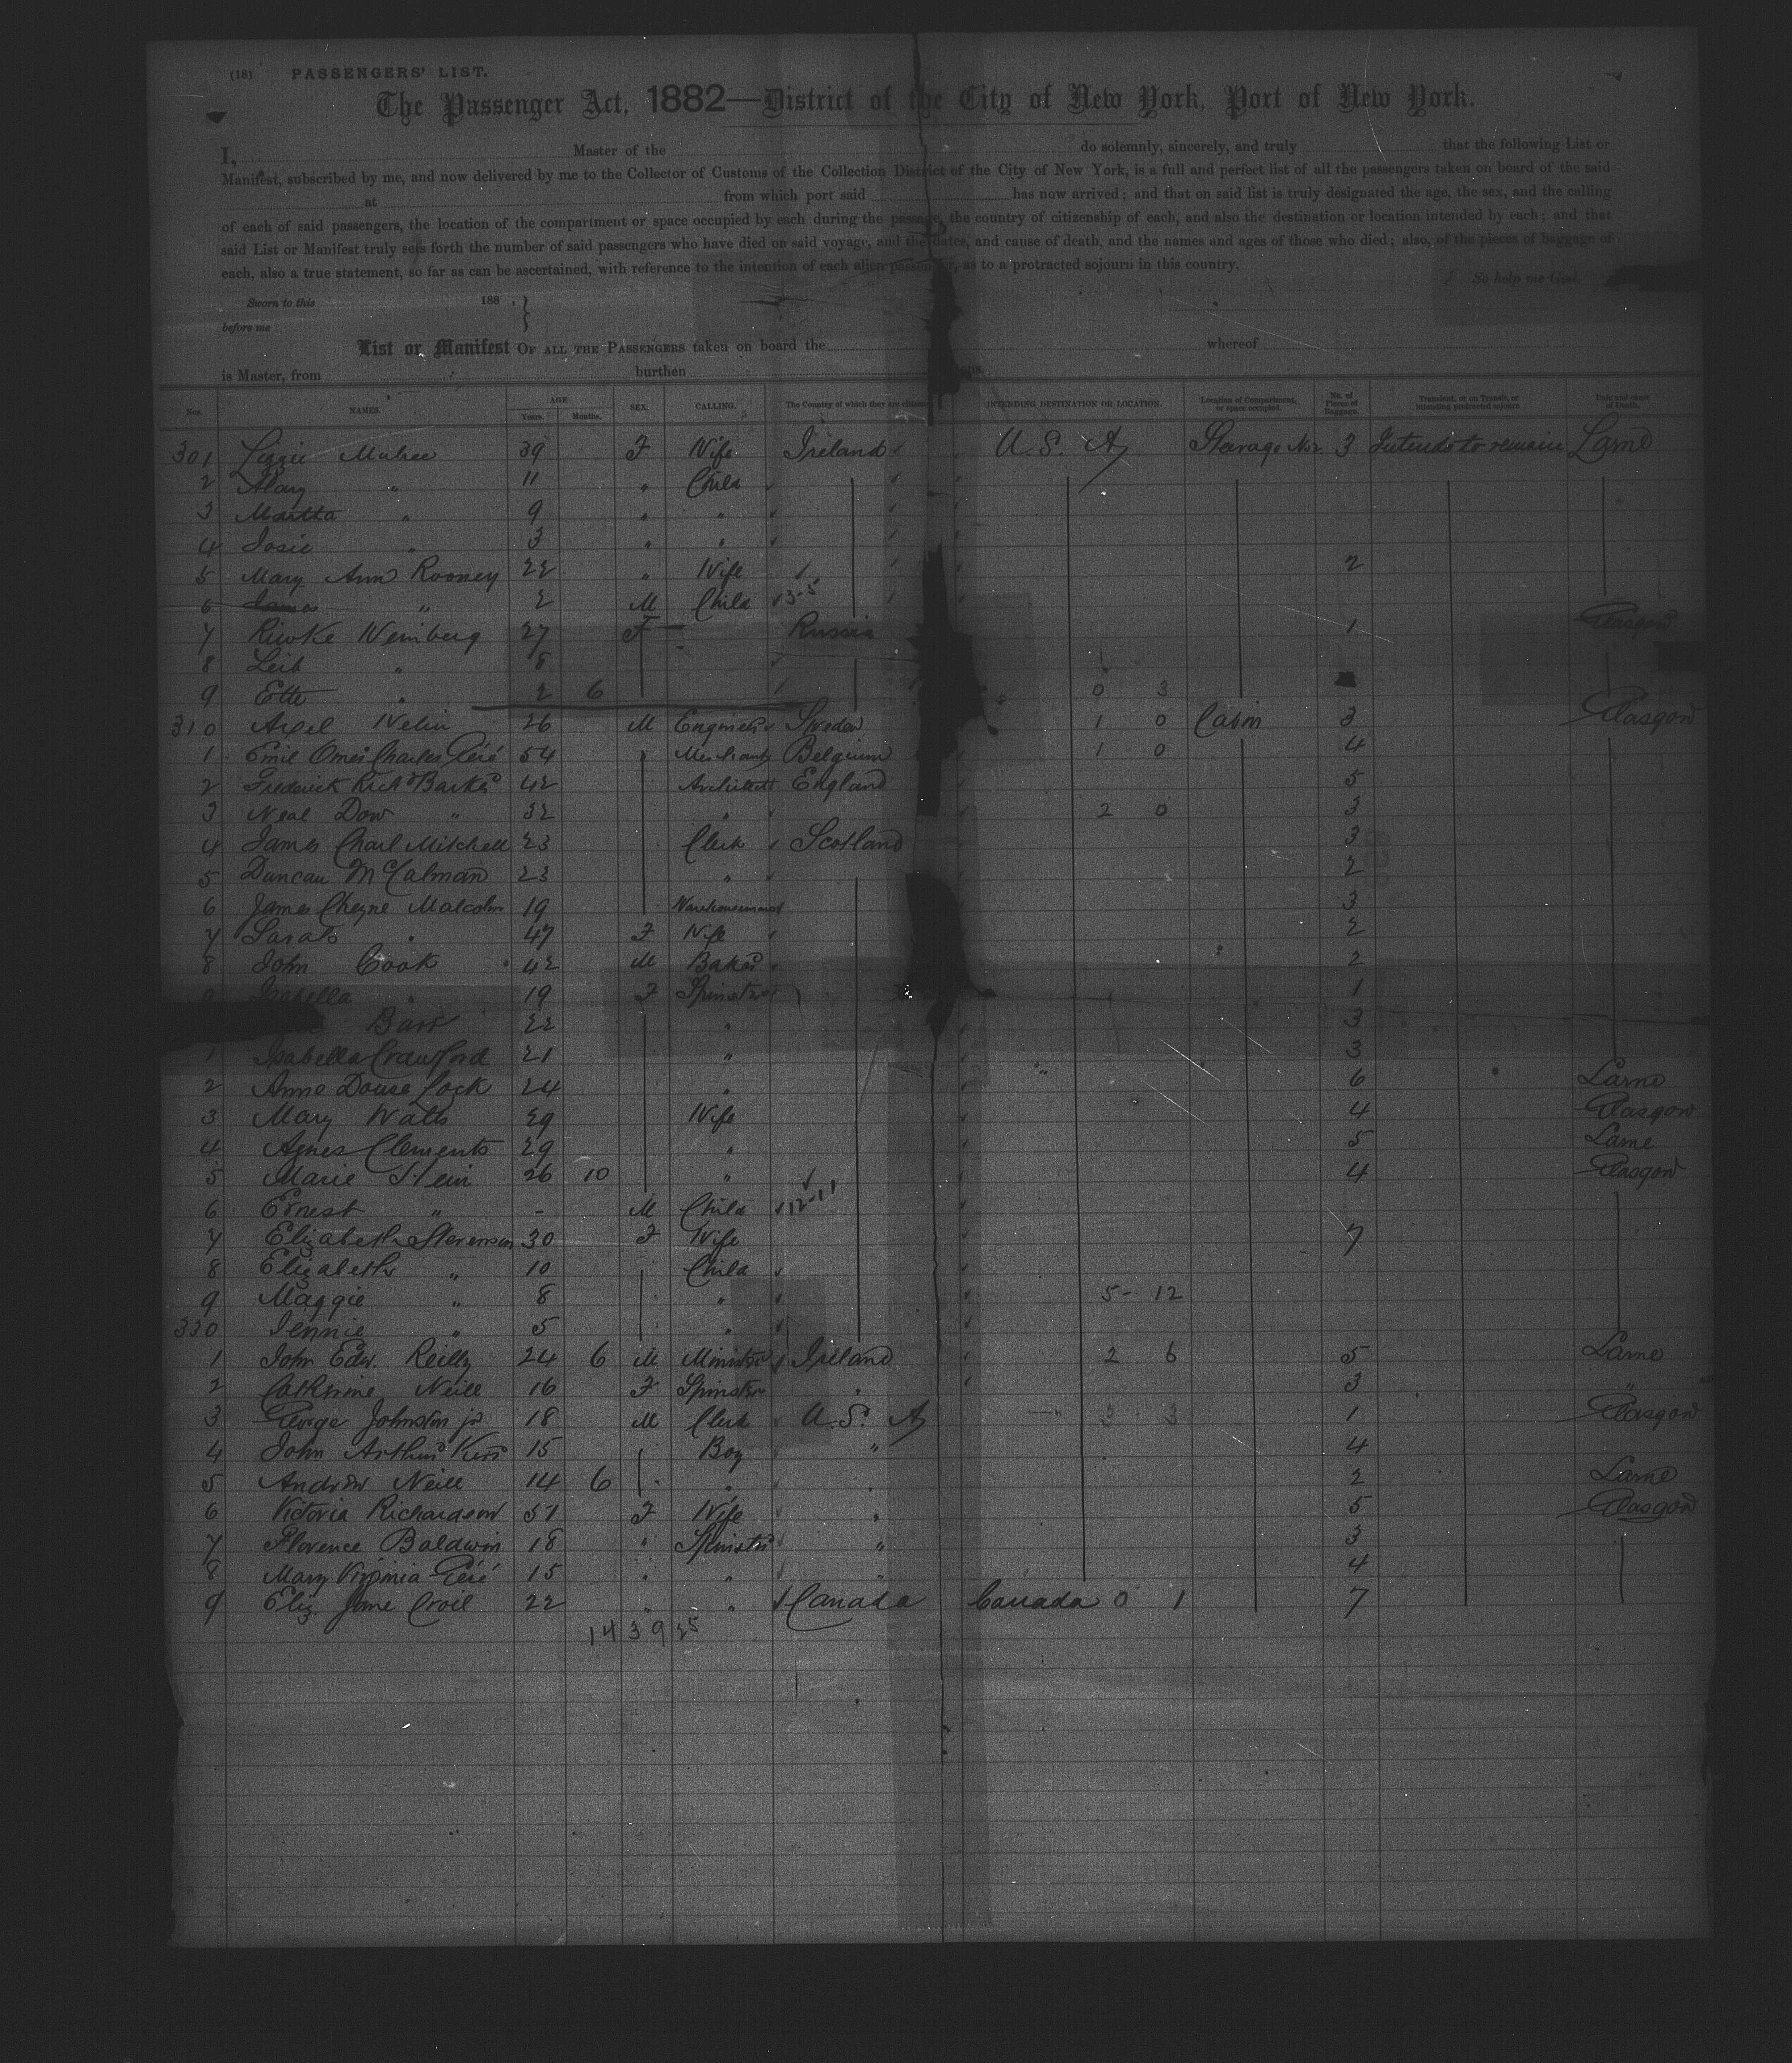 (18) PASSENGERS' LIST.
The Passenger Act, 1882—District of the City of New York, Port of New York.
I, Master of the do solemnly, sincerely, and truly that the following List or
Manifest, subscribed by me, and now delivered by me to the Collector of Customs of the Collection District of the City of New York, is a full and perfect list of all the passengers taken on board of the said
at from which port said has now arrived; and that on said list is truly designated the age, the sex, and the calling
of each of said passengers, the location of the compartment or space occupied by each during the passage, the country of citizenship of each, and also the destination or location intended by each; and that
said List or Manifest truly sets forth the number of said passengers who have died on said voyage, and the dates, and cause of death, and the names and ages of those who died; also, of the pieces of baggage of
each, also a true statement, so far as can be ascertained, with reference to the intention of each alien passenger, as to a protracted sojourn in this country.
So help me God
Sworn to this 188 .
before me
List or Manifest OF ALL THE PASSENGERS taken on board the whereof
is Master, from burthen tons.
Nos. NAMES. AGE Years. Months. SEX. CALLING. The Country of which they are citizens INTENDING DESTINATION OR LOCATION. Location of Compartment, or space occupied. No. of Pieces of Baggage. Transient, or in Transit, or intending protracted sojourn Date and cause of Death.
301 Lizzie 39 F Wife Ireland U. S. A Steerage 3 Intends to remain Larne
2 Mary " 11 " Child
3 Martha " 9 " "
4 Josie " 3 " "
5 Mary Ann Rooney 22 " Wife 2
6 James " 2 M Child 3-5
7 Riwke Weinberg 27 F Russia 1 Glasgow
8 Leib " 8
9 Ette " 2 6 0 3
310 Axel 26 M Engineer Sweden 1 0 Cabin 3 Glasgow
1 Emil Omer Charles Géré 54 Merchant Belgium 1 0 4
2 Frederick Richd Barker 42 Architect England 5
3 Neal Dow " 32 " 2 0 3
4 James Charl Mitchell 23 Clerk Scotland 3
5 Duncan McCalman 23 " 2
6 James Cheyne Malcolm 19 Warehouseman 3
7 Sarah " 47 F Wife 2
8 John Cook 42 M Baker 2
9 Isabella " 19 F Spinster 1
Barr 22 " 3
1 Isabella Crawford 21 " 3
2 Anne Douse Lock 24 " 6 Larne
3 Mary Watts 29 Wife 4 Glasgow
4 Agnes Clements 29 " 5 Larne
5 Marie Stein 26 10 " 4 Glasgow
6 Ernest " - M Child 12-11
7 Elizabeth Stevenson 30 F Wife 7
8 Elizabeth " 10 Child
9 Maggie " 8 " 5- 12
330 Jennie " 5 "
1 John Edw. Reilly 24 6 M Minister Ireland 2 6 5 Larne
2 Catherine Neill 16 F Spinster " 3 "
3 George Johnston jr 18 M Clerk U. S. A 3 3 1 Glasgow
4 John Arthur Kerr 15 Boy " 4
5 Andrew Neill 14 6 " " 2 Larne
6 Victoria Richardson 51 F Wife " 5 Glasgow
7 Florence Baldwin 18 " Spinster " 3
8 Mary Virginia Géré 15 " " " 4
9 Eliz Jane Croil 22 " " Canada Canada 0 1 7
14 39 25